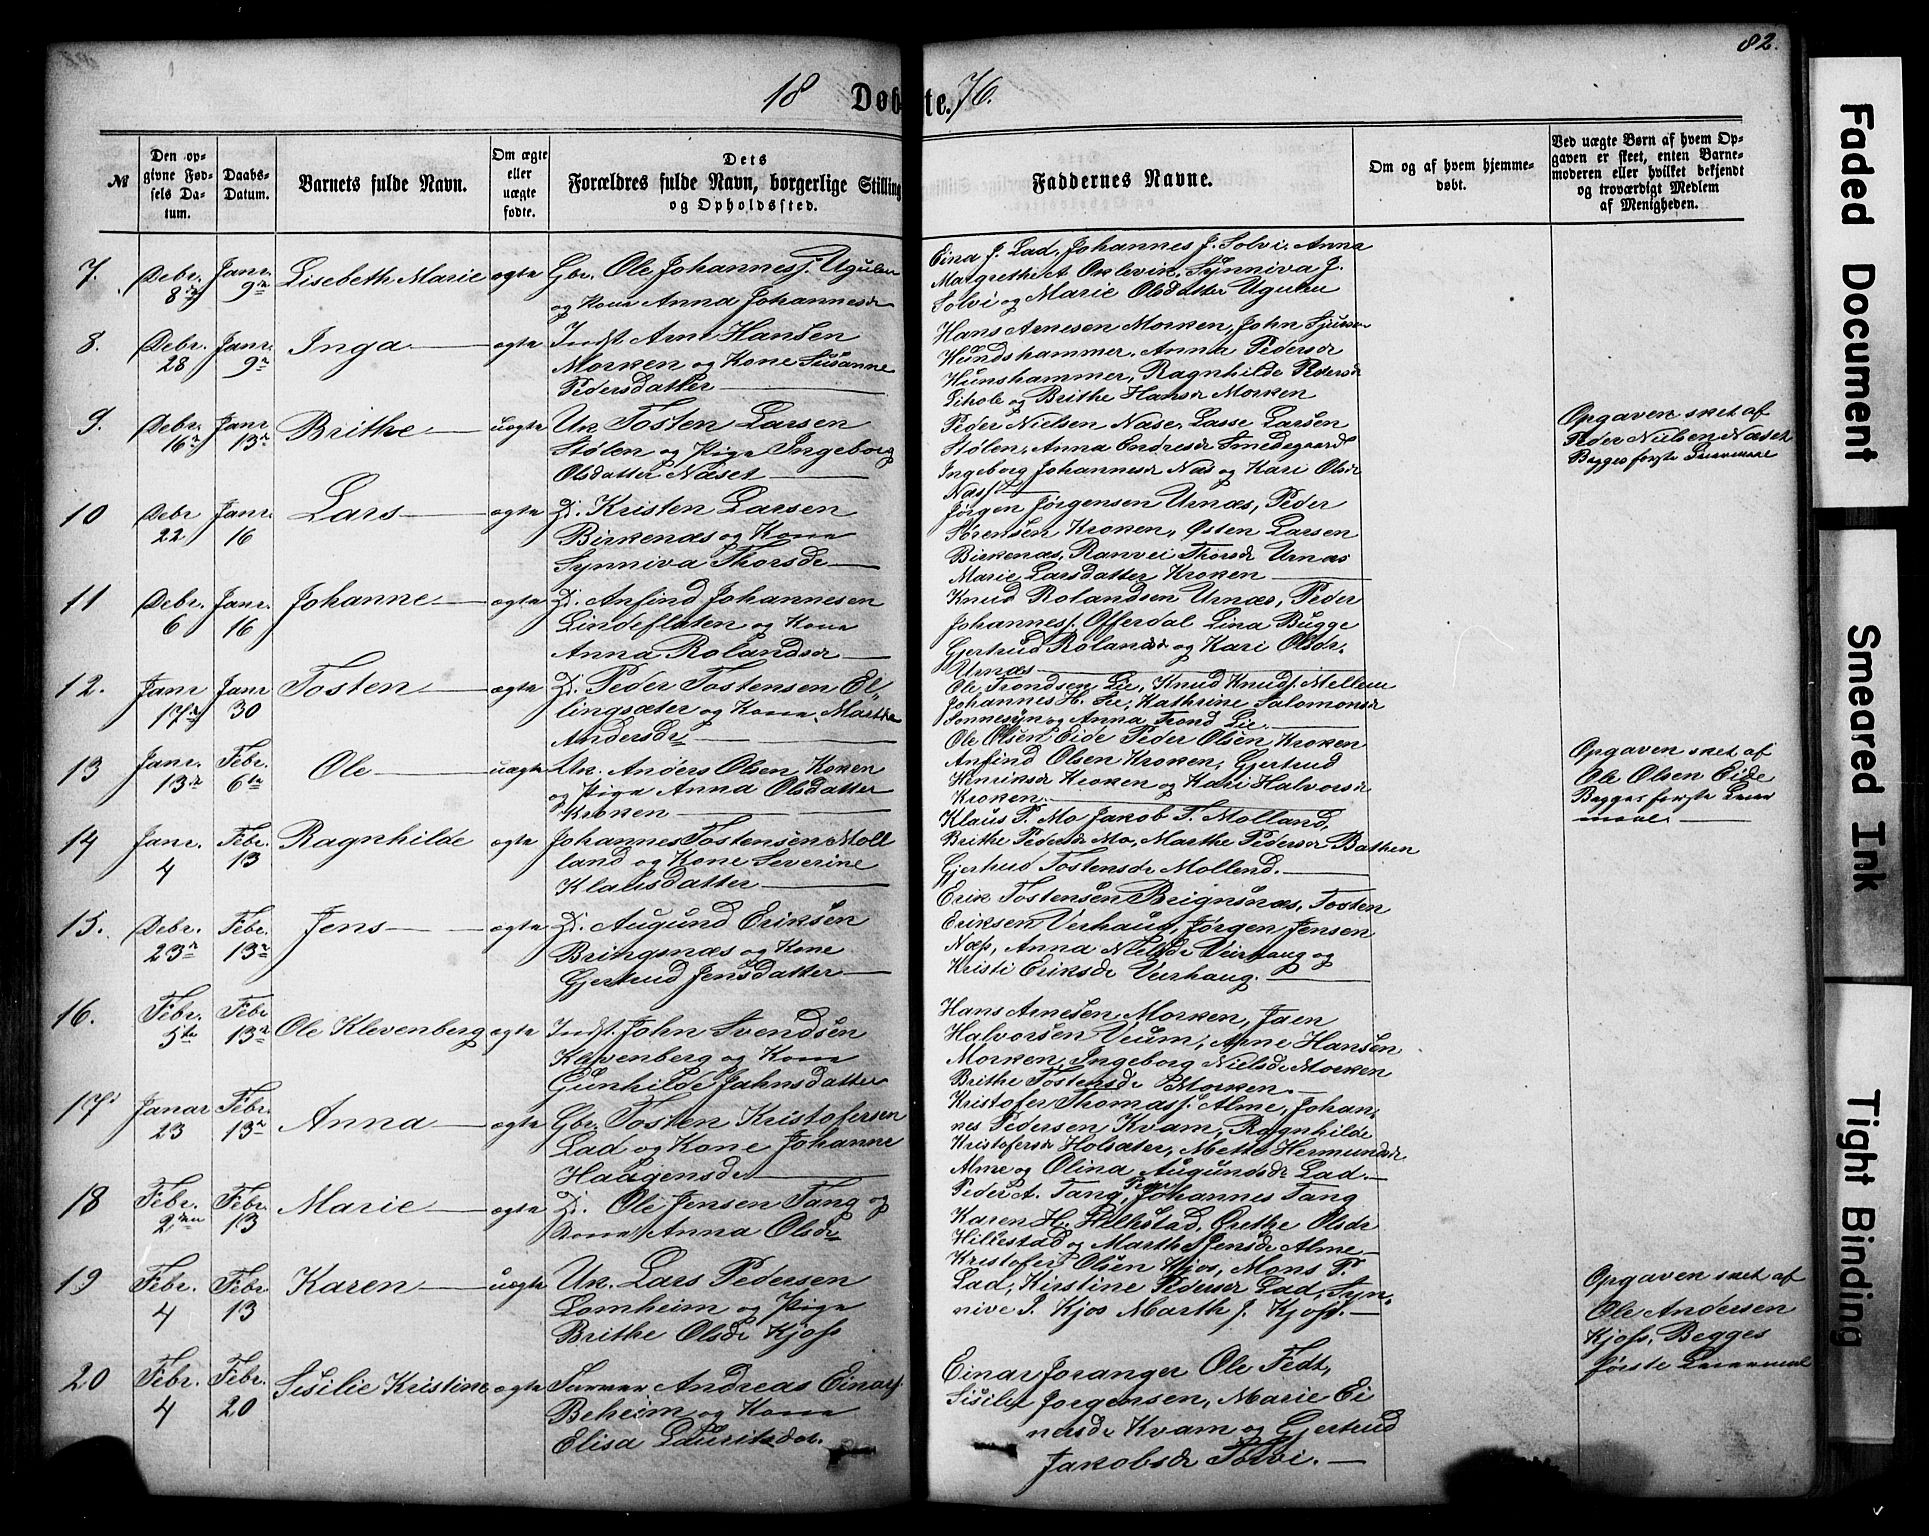 82.
18 Døbte. 76.
№
Den opgivne Fødsels Datum.
Daabs-Datum.
Barnets fulde Navn.
Om ægte eller uægte fødte.
Dets Forældres fulde Navn, borgerlige Stilling og Opholdssted.
Faddernes Navne.
Om og af hvem hjemmedøbt.
Ved uægte Børn af hvem Opgaven er skeet, enten Barnemoderen eller hvilket bekjendt og troværdigt Medlem af Menigheden.
7. Debr. 8 Janr. 9 Lisebeth Marie ægte Gbr. Ole Johannesf. Ugulen
og Kone Anna Johannesdr
Eina J. Lad, Johannes J. Solvi, Anna
Margrethe A Oxlevik, Synniva J.
Solvi og Marie Olsdatter Ugulen
8. Debr. 28 Janr. 9 Inga ægte Indst Arne Hansen
Morken og Kone Susanne
Pedersdatter
Hans Arnesen Morken, John Sjurse
Hundshammer, Anna Pedersdr
Hunshammer, Ragnhilde Pedersdr
Lihole og Brithe Hansdr Morken
9. Debr. 16 Janr 13 Brithe uægte Uk. Tosten Larsen
Stølen og Pige Ingeborg
Olsdatter Næset
Peder Nielsen Næse, Lasse Larsen
Stølen, Anna Endresdr Smedegaard
Ingeborg Johannesdr Næs og Kari Olsdr
Næss
Opgaven sket af
Peder Nielsen Næset
Begges første Leiermaal
10 Debr 22 Janr. 16 Lars ægte Kristen Larsen
Birkenæs og Kone
Synniva Thorsdr
Jørgen Jørgensen Urnæs, Peder
Sørensen Kroken, Østen Larsen
Birkenæs, Ranvei Thorsdr Urnæs
Marie Larsdatter Kroken
11 Debr. 6 Janr. 16 Johanne ægte Anfind Johannesen
Lindeflaten og Kone
Anna Rolandsdr
Knud Rolandsen Urnæs, Peder
Johannesf. Offerdal Lina Bugge
Gjertrud Rolandsdr og Kari Olsdr.
Urnæs
12. Janr 17 Janr 30 Tosten ægte Peder Tostensen El
lingsæter og Kone Marthe
Andersdr
Ole Trondsen Lie, Knud Knudsf. Mellem
Johannes H. Lie, Kathrine Salomonsdr
Sonnesyn og Anna Trond Lie
13 Janr. 13 Febr. 6 Ole uægte Uk. Anders Olsen Kroken
og Pige Anna Olsdatter
Kroken
Ole Olsen Eide Peder Olsen Kroken
Anfind Olsen Kroken, Gjertrud
Henriksdr Kroken og Kari Halvorsdr
Kroken.
Opgaven sket af
Ole Olsen Eide
Begges første Leier
maal
14 Janr. 4 Febr. 13 Ragnhilde ægte Johannes Tostensen Moll
land og Kone Severine
Klausdatter
Klaus P. Mo Jakob T. Molland,
Brithe Pedersdr Mo, Marthe Pedersdr Bathen
Gjertrud Tostensdr Mollend.
15. Debr. 23 Febr. 13 Jens ægte Augund Eriksen
Bringsnæs og Kone
Gjertrud Jensdatter
Erik Tostensen Bringsnæs, Tosten
Eriksen Verhaug, Jørgen Jensen
Næs, Anna Nielsdr Veirhaug og
Kristi Eriksdr Veirhaug.
16. Febr. 5te Febr 13 Ole Klevenberg ægte Indst. John Svendsen
Klevenberg og Kone
Gunhilde Jahnsdatter
Hans Arnesen Morken, Jaen
Halvorsen Veum, Arne Hansen
Morken, Ingeborg Nielsdr Morken
Brithe Tostensdr Morken.
17 Janar 23 Febr. 13 Anna ægte Gbr. Tosten Kristofersen
Lad og Kone Johanne
Haagensdr
Kristofer Thomasf. Alme, Johan
nes Pedersen Kvam, Ragnhilde
Kristofersdr Holsæter, Mette Hermundsdr
Alme og Olina Augundsdr Lad.
18 Febr. 2 Febr. 13 Marie ægte Ole Jensen Tang og
Kone Anna Olsdr
Peder A. Tang, Peder Johannes Tang
Karen H. Hillestad, Grethe Olsdr
Hillestad og Marthe Jensdr Alme
19 Febr. 4 Febr 13 Karen uægte Uk. Lars Pedersen
Lomheim og Pige
Brithe Olsdr Kjoss
Kristofer Olsen Kjos, Mons P.
Lad, Kirstine Pedersdr Lad, Syn
nive J. Kjos Marth J. Kjoss.
Opgaven sket af
Ole Andersen
Kjoss, Begges
første Leiermaal
20 Febr. 4 Febr. 20 Sisilie Kristine ægte Andreas Einarsf.
Beheim og Kone
Elisa Lauritsdat.
Einar Joranger Ole Fedt,
Sisilie Jørgensen, Marie Ei
nersdr Kvam og Gjertrud
Jakobsdr Solvi.
Faded Document
Smeared Ink
Tight Binding